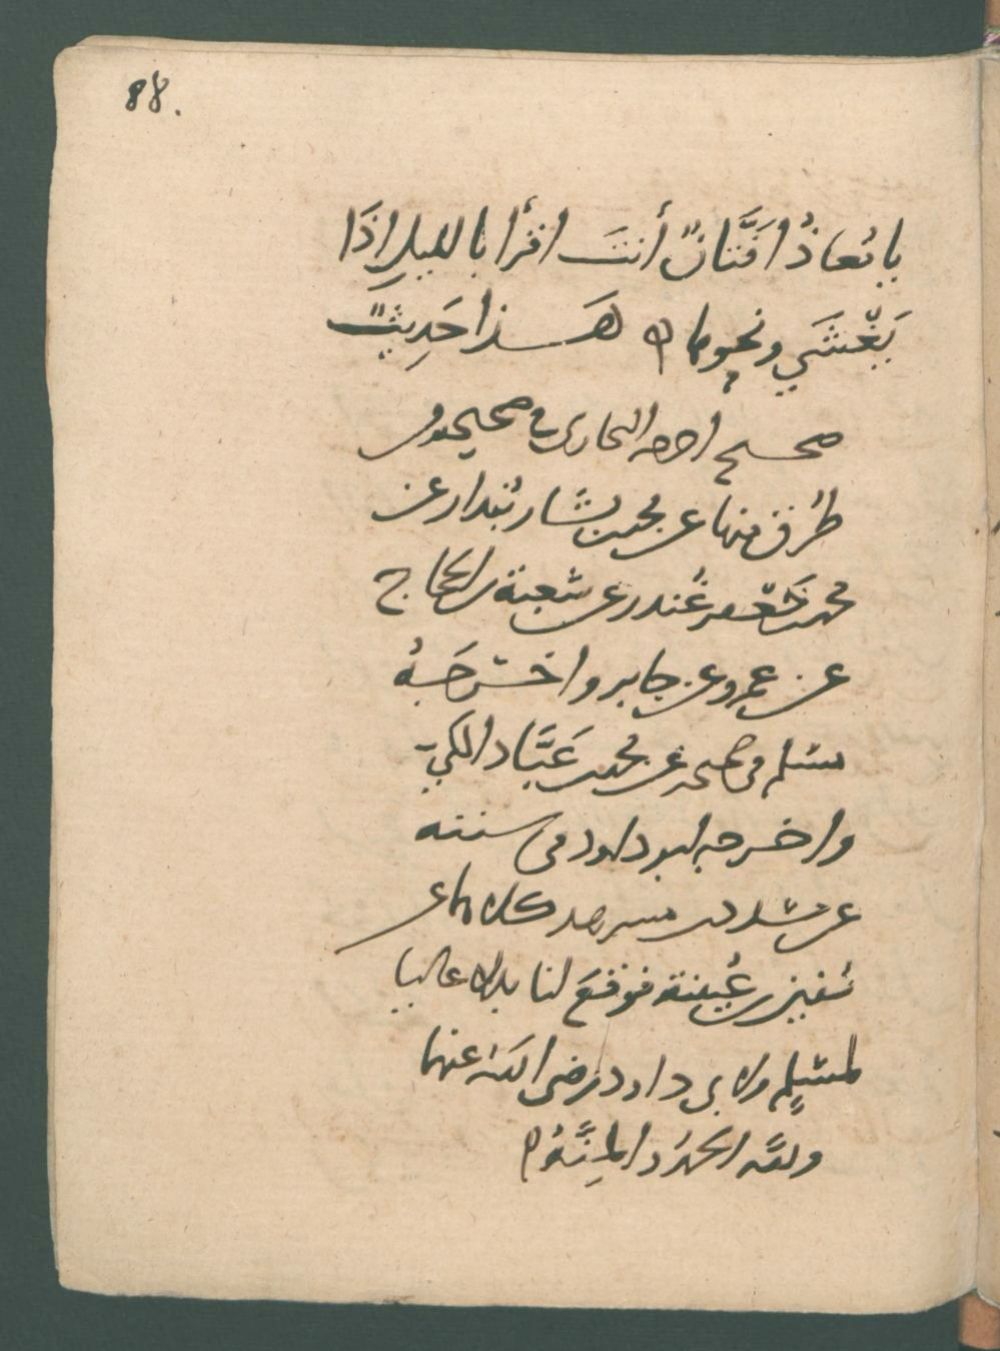 88.
يا مُعاذُ افَتَّانٌ أنتَ اقرأ بالليلِ اذَا
يَغْشَي ونحوها هَذا حَدِيثٌ
صحيح اخرجه البخاري في صحيحه
طرق منها عن محمد بن بشار بُندار عن
محمد بن جَعْفر غُندر عن شعبة بن الحجاج
عن عمرو عن جابر واخْرَجَهُ
مسْلم في صحيحه عن محمد بن عَبَّاد المكيّ
واخرجه ابو داود في سننه
عن مسَدد بن مسرهد كلاهما عن
سُفين بن عُيينة فوقعَ لنا بدلا عاليا
لمسْلِمٍ ولابي داود رضي الله عنهما
ولله الحمدُ والمِنَّةُ